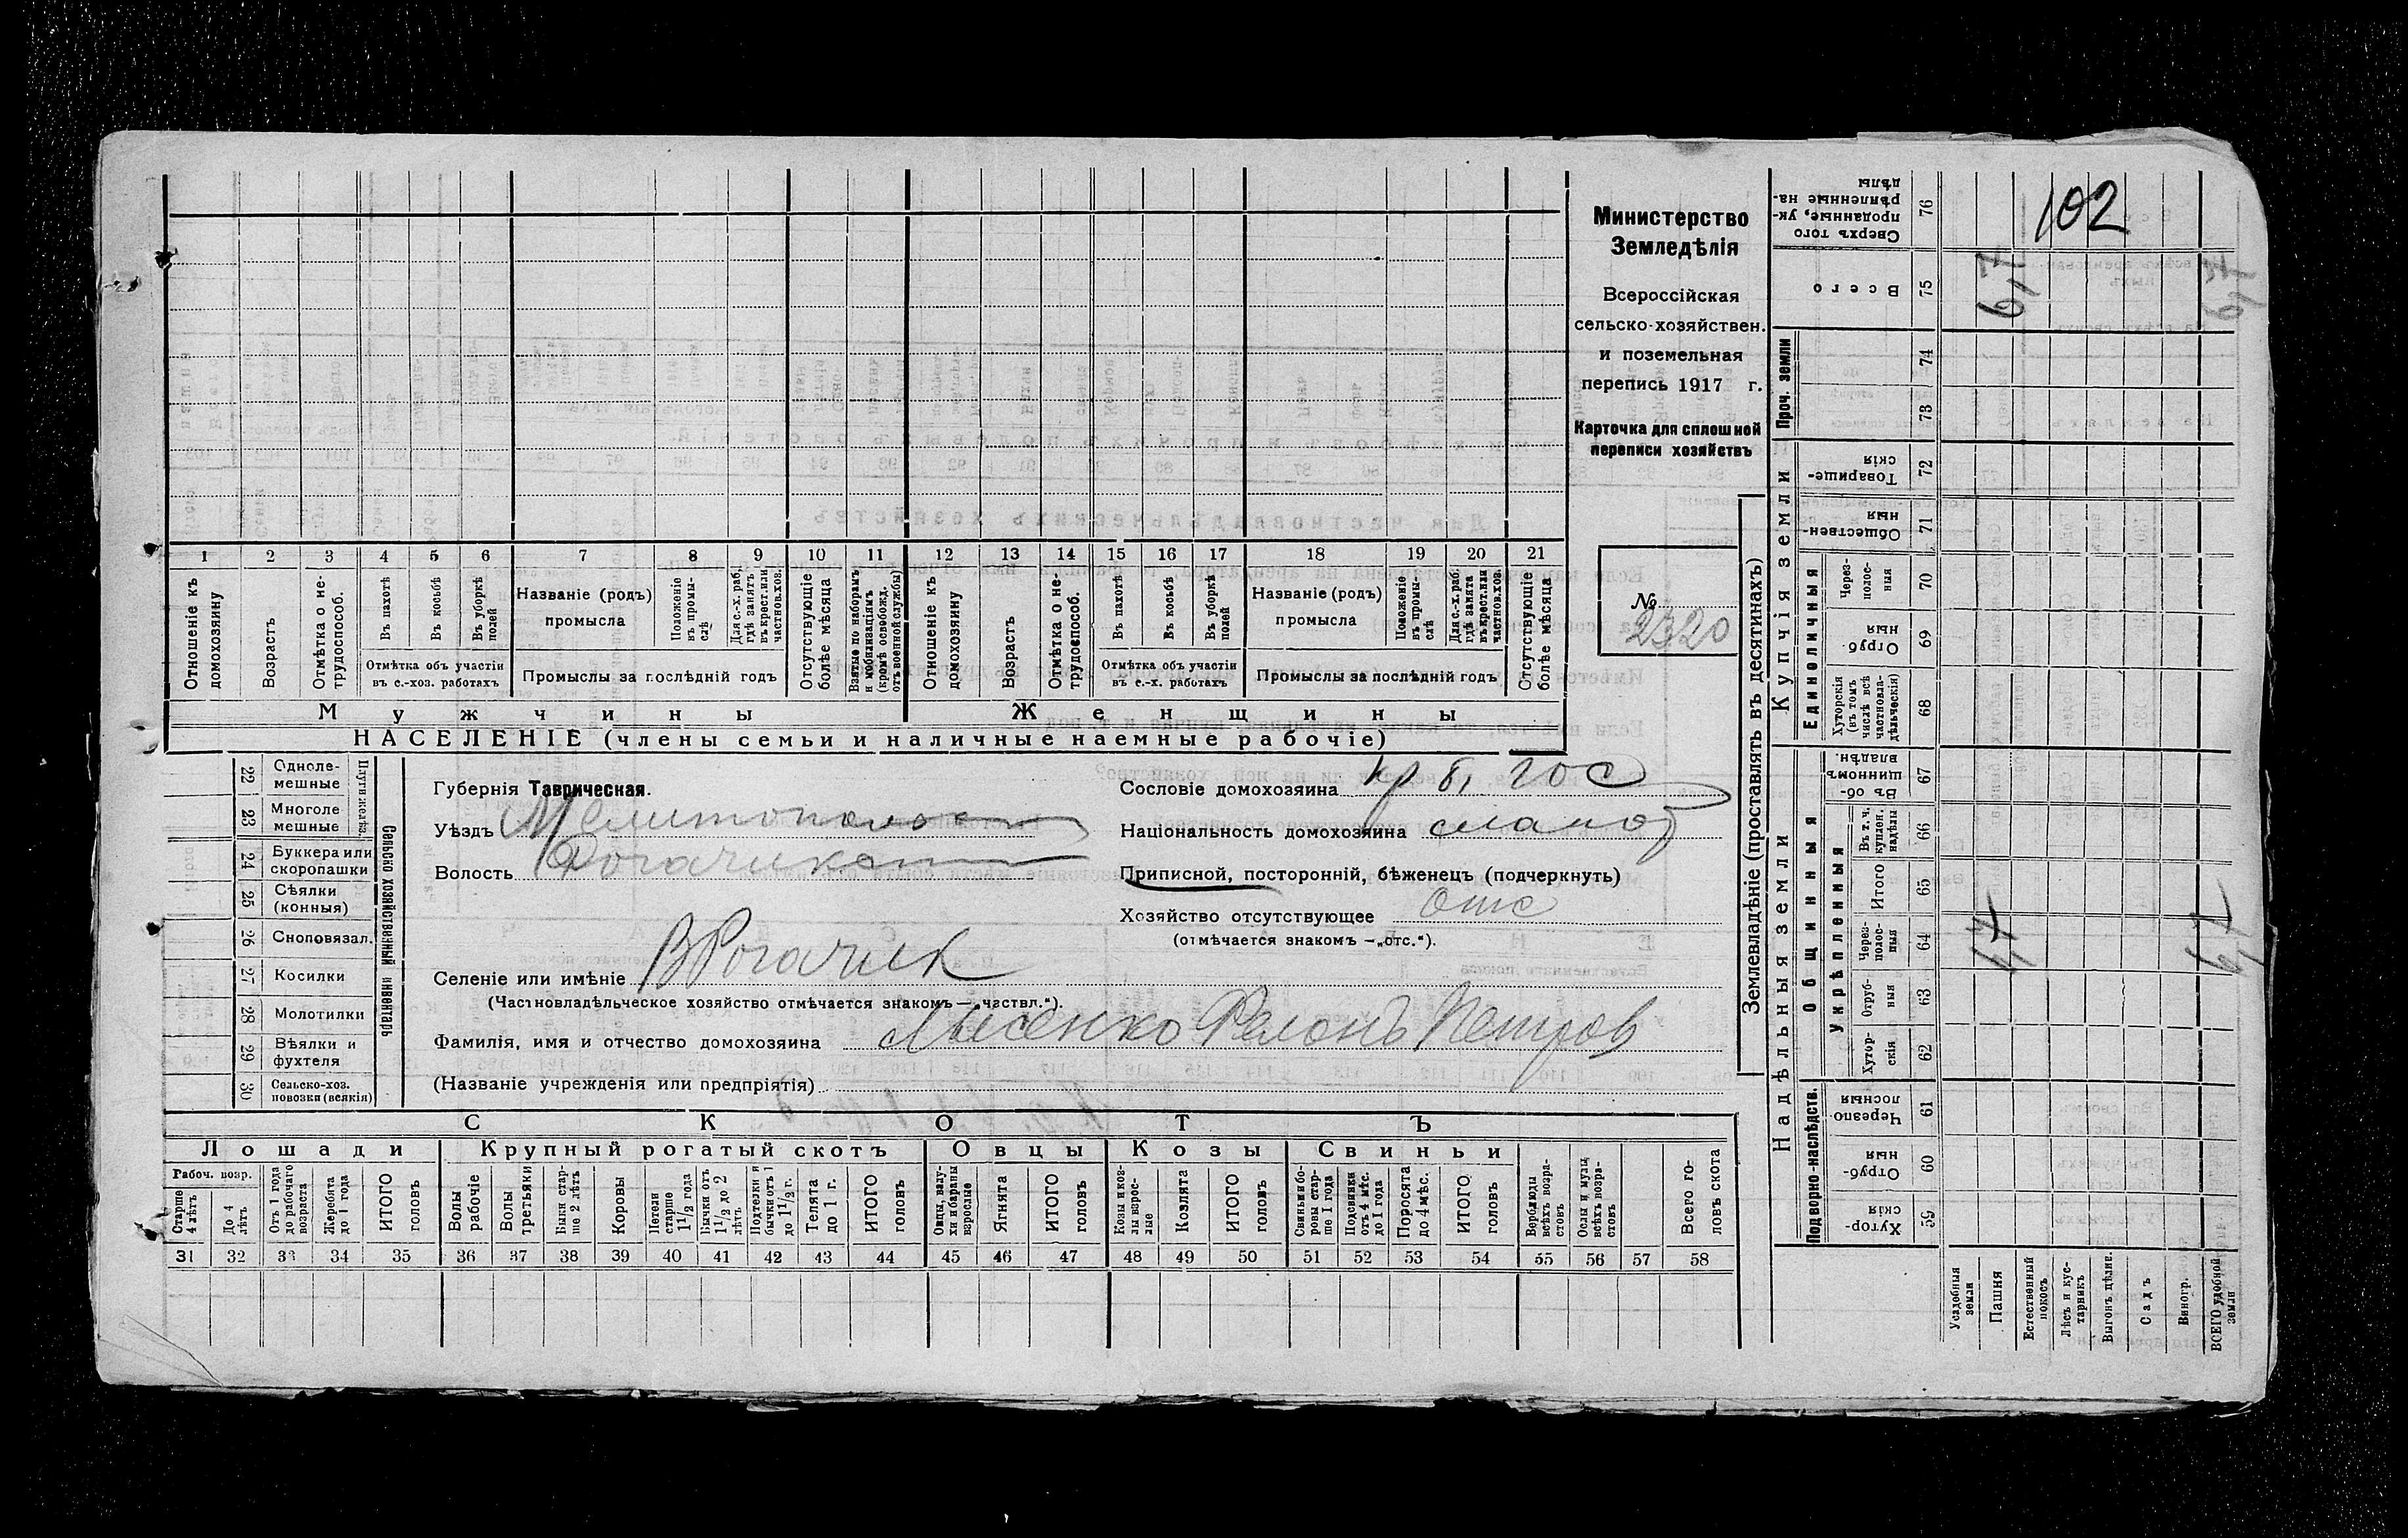 102
Министерство
Земледѣлія
Всероссійская
сельско-хозяйствен.
и поземельная
перепись 1917 г.
Карточка для сплошной
переписи хозяйствъ
№
2320
1 2 3 4 5 6 7 8 9 10 11 12 13 14 15 16 17 18 19 20 21
Отношеніе къ домохозяину
Возрастъ
Отмѣтка о не-трудоспособ.
Въ пахотѣ
Въ косьбѣ
Въ уборкѣ полей
Отмѣтка объ участіи
въ с.-хоз. работахъ
Названіе (родъ)
промысла
Положеніе въ промы-слѣ
Для с.-х. раб. гдѣ занятъ въ крест. или частнов. хоз.
Промыслы за послѣдній годъ
Отсутствующіе болѣе мѣсяца
Взятые по наборамъ и мобилизаціямъ (кромѣ освобожд. отъ военной службы)
Отношеніе къ домохозяину
Возрастъ
Отмѣтка о не-трудоспособ.
Въ пахотѣ
Въ косьбѣ
Въ уборкѣ полей
Отмѣтка объ участіи
въ с.-х. работахъ
Названіе (родъ)
промысла
Положеніе въ промы-слѣ
Для с.-х. раб. гдѣ занята въ крест. или частнов. хоз.
Промыслы за послѣдній годъ
Отсутствующіе болѣе мѣсяца
Мужчины Женщины
НАСЕЛЕНІЕ (члены семьи и наличные наемные рабочіе)
22 Одноле-мешные
23 Многоле мешные
24 Буккера или скоропашки
25 Сѣялки (конныя)
26 Сноповязал.
27 Косилки
28 Молотилки
29 Вѣялки и фухтеля
30 Сельско-хоз. повозки (всякія)
Сельско хозяйственный инвентарь
Губернія Таврическая.
Уѣздъ Мелитопольс
Волость Рогачикс
Селеніе или имѣніе В Рогачик
(Частновладѣльческое хозяйство отмѣчается знакомъ —„чствл.“).
Фамилія, имя и отчество домохозяина Лысенко Филонъ Петров
(Названіе учрежденія или предпріятія)
Сословіе домохозяина кр б, гос
Національность домохозяина
Приписной, посторонній, бѣженецъ (подчеркнуть)
Хозяйство отсутствующее Отс
(отмѣчается знакомъ —„отс.“).
СКОТЪ
Лошади Крупный рогатый скотъ Овцы Козы Свиньи
Рабоч. возр.
Старше 4 лѣтъ
До 4 лѣтъ
Отъ 1 года до рабочаго возраста
Жеребята до 1 года
ИТОГО головъ
Волы рабочіе
Волы третьяки
Быки стар-ше 2 лѣтъ
Коровы
Нетели старше 1 1/2 года
Бычки отъ 1 1/2 до 2 лѣтъ
Подтелки и бычки отъ 1 до 1 1/2 г.
Телята до 1 г.
ИТОГО головъ
Овцы, валу-хи и бараны взрослые
Ягнята
ИТОГО головъ
Козы и коз-лы взрос-лые
Козлята
ИТОГО головъ
Свиньи и бо-ровы стар-ше 1 года
Подсвинки отъ 4 мѣс. до 1 года
Поросята до 4 мѣс.
ИТОГО головъ
Верблюды всѣхъ возра-стовъ
Ослы и мулы всѣхъ возра-стовъ
Всего го-ловъ скота
31 32 33 34 35 36 37 38 39 40 41 42 43 44 45 46 47 48 49 50 51 52 53 54 55 56 57 58
Землевладѣніе (проставлять въ десятинахъ)
Надѣльныя земли Купчія земли Проч. земли
Подворно-наслѣдств.
Общинныя
Укрѣпленныя
Единоличныя
Хутор-скія 59
Отруб-ныя 60
Черезпо-лосныя 61
Хутор-скія 62
Отруб-ныя 63
Через-полос-ныя 64
Итого 65
Въ т. ч. куплен. надѣлы 66
Въ об-щинномъ владѣн. 67
Хуторскія (въ томъ числѣ всѣ частновла-дѣльческія) 68
Отруб-ныя 69
Через-полос-ныя 70
Обществен-ныя 71
Товарище-скія 72
73
74
Всего 75
Сверхъ того проданные, ук-рѣпленные на-дѣлы 76
Усадебныя земли
Пашня
Естественный покосъ
Лѣсъ и кус-тарникъ
Выгонъ цѣлин.
Садъ
Виногр.
ВСЕГО удобной земли